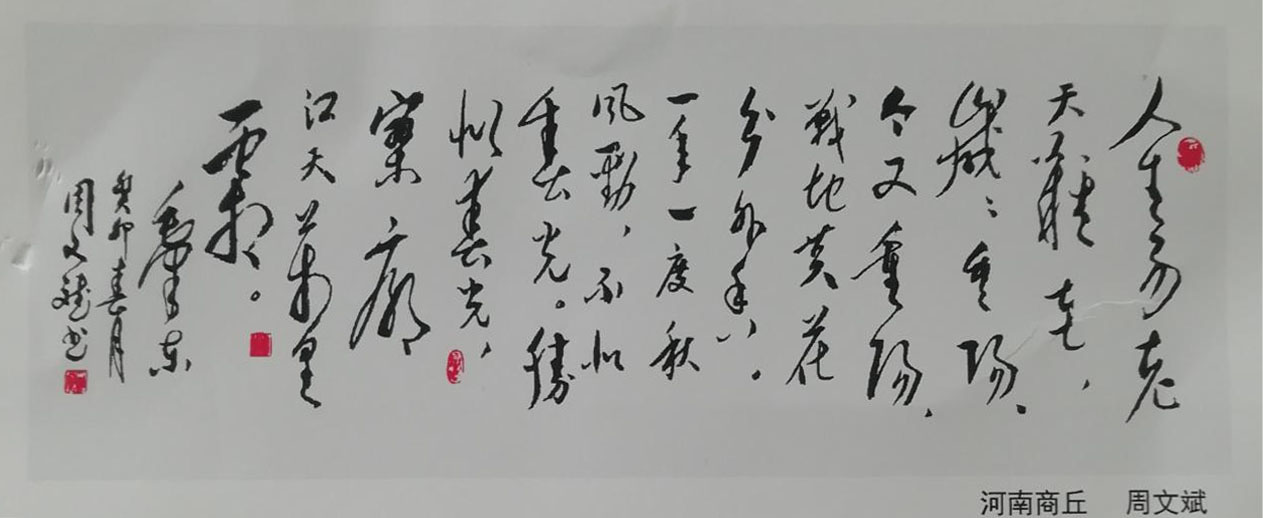 人生易老
天難老，
歲々重陽.
今又重陽.
戰地黄花
分外香。
一年一度秋
風勁，不似
春光。勝
似春光，
寥廓
江天萬里
霜。
毛泽东
癸卯春月
周文斌书
河南商丘 周文斌